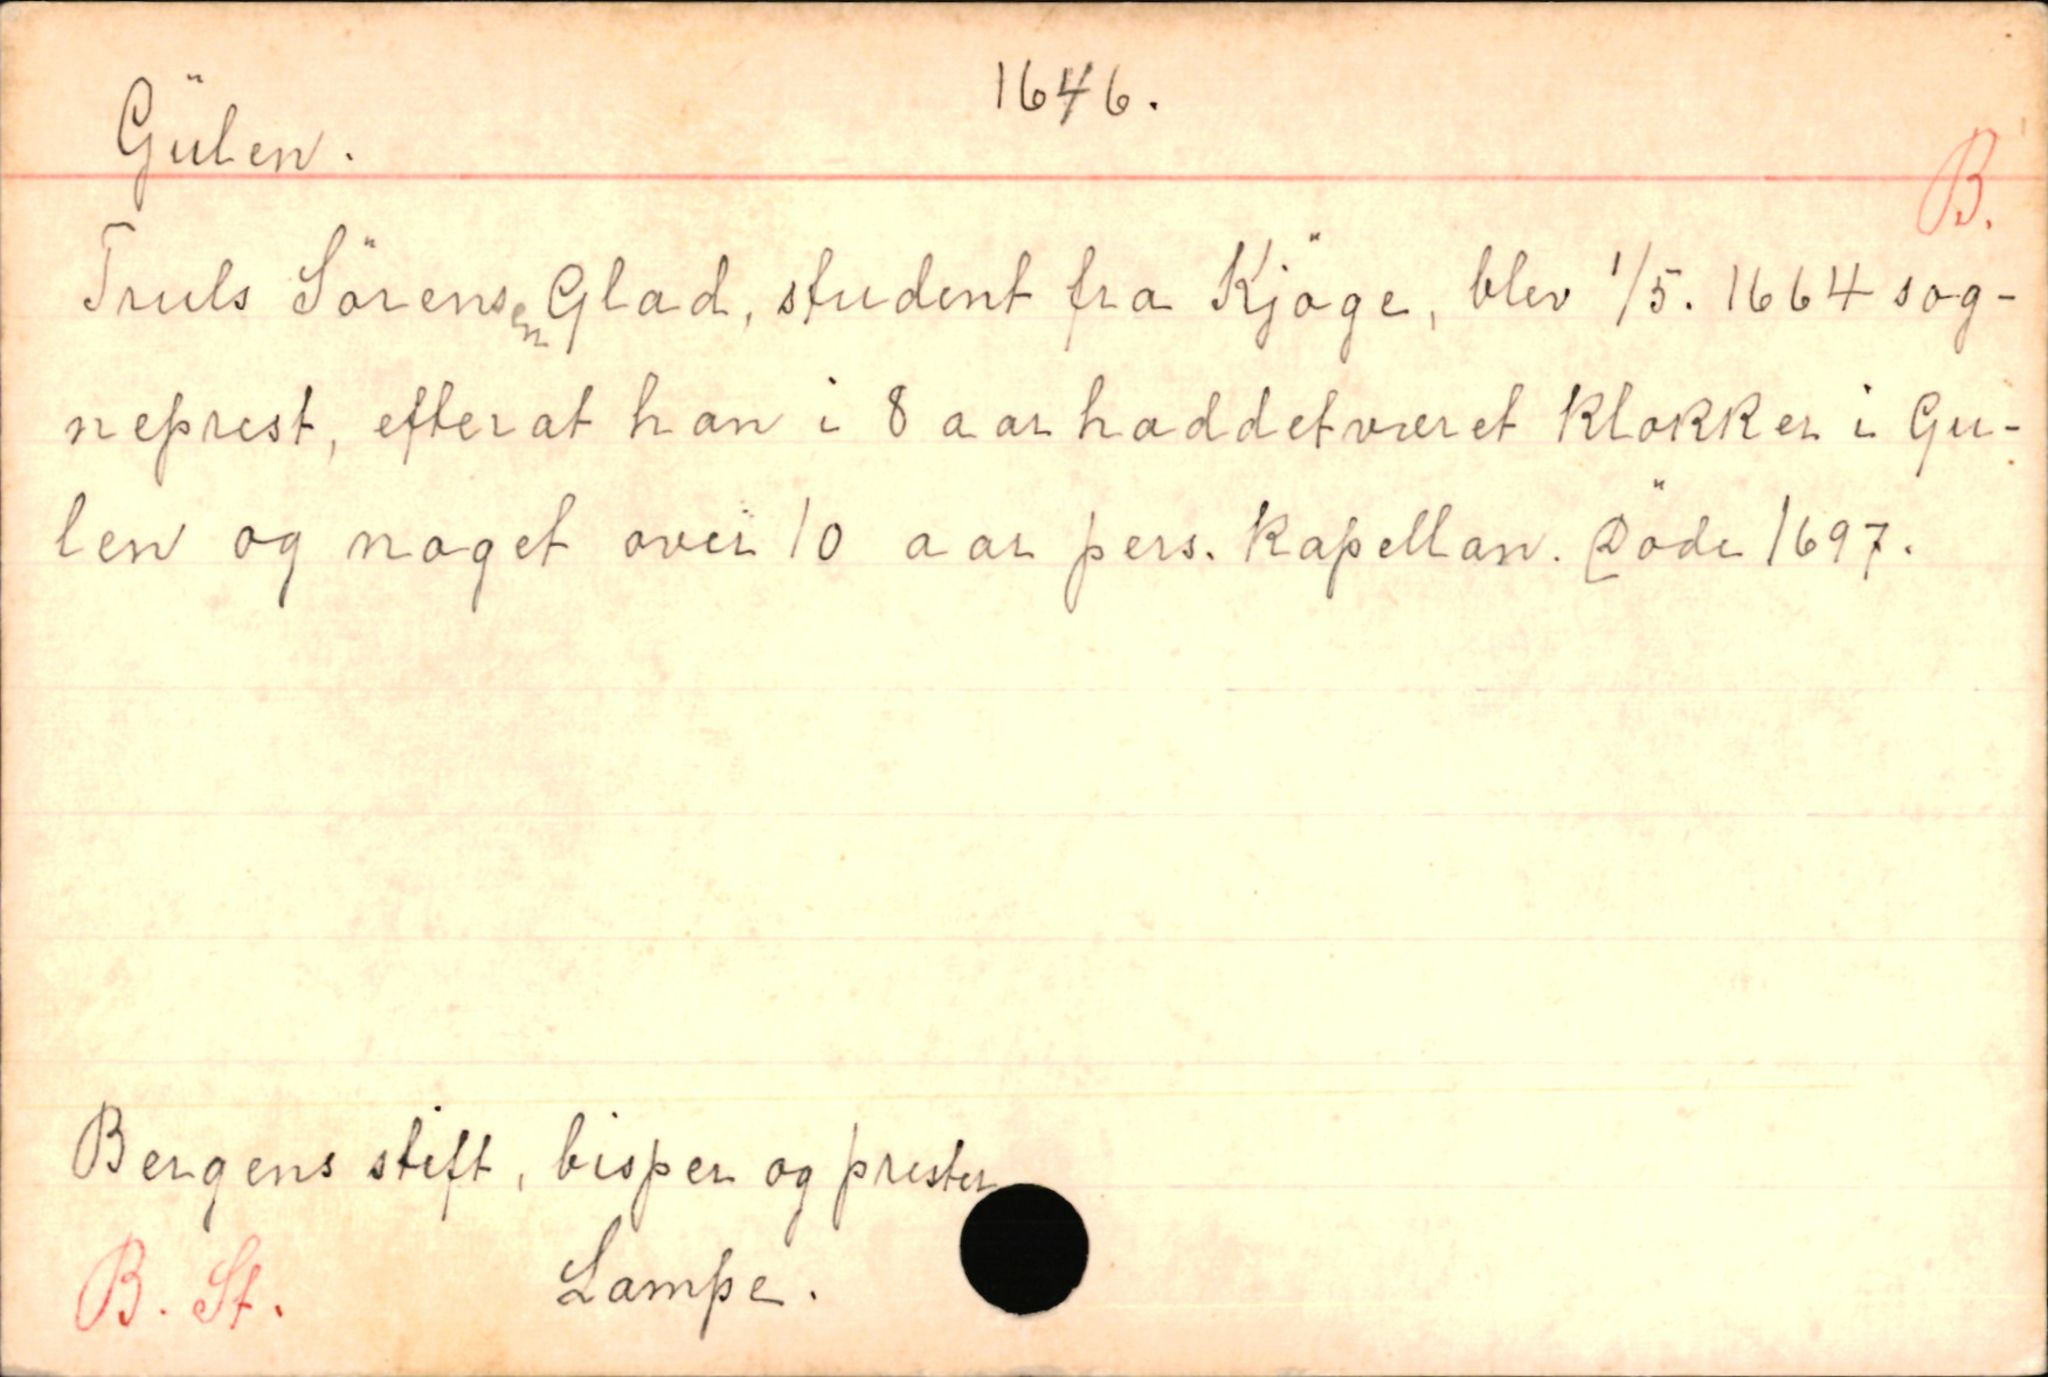 1646.
Gülen.
B.
Truls Sörensen Glad, student fra Kjöge, blev 1/5. 1664 sog-
neprest, efter at han i 8 aar haddet været klokker i Gu-
len og noget over 10 aar pers. kapellan. Döde 1697.
Bergens stift, bisper og prester
B. St. Lampe.